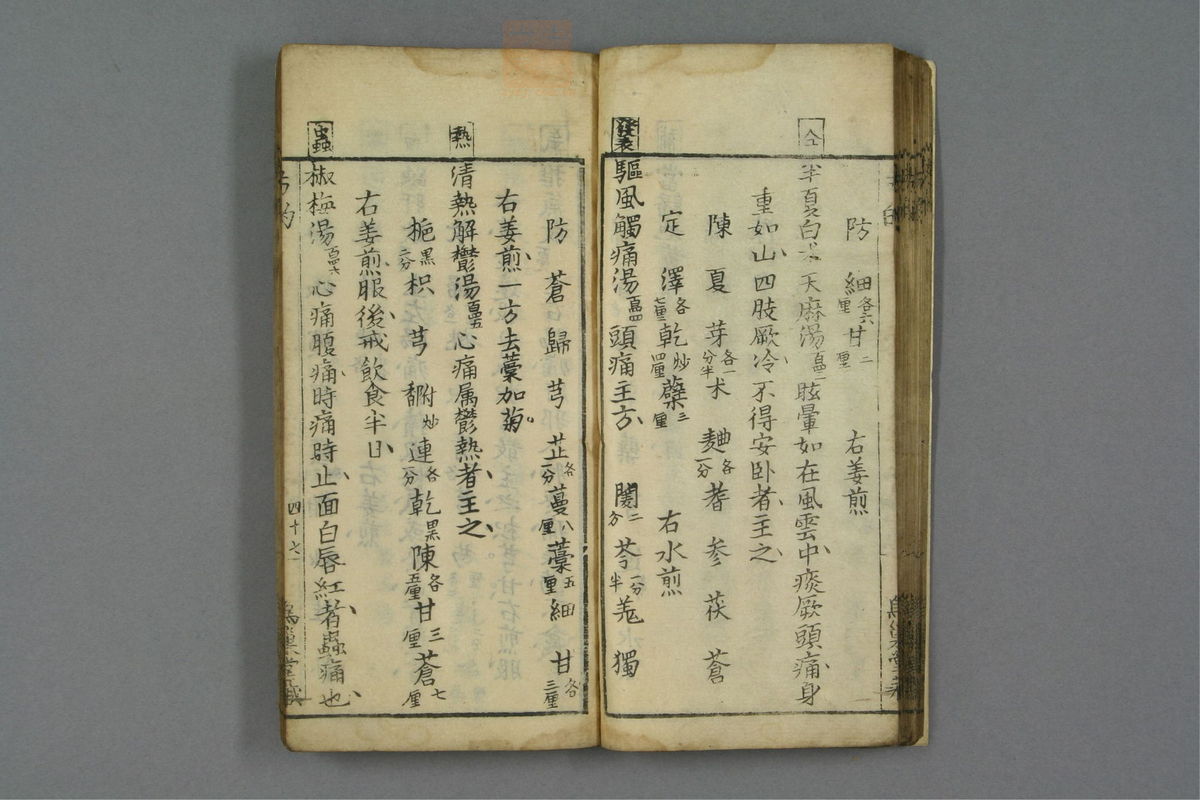 防 細各六厘 甘二厘 右姜煎
半夏白朮天麻湯 眩暈如在風雲中痰厥頭痛身
重如山四肢厥冷不得安臥者主之
陳 夏 芽各一分半 朮 麯各一分 蓍 參 茯 蒼
定 澤各七厘 乾炒四厘 蘗三厘 右水煎
發表
驅風觸痛湯百四四 頭痛主方 芩一分半 羗 獨
防 蒼 歸 芎 芷各一分 蔓八厘 藁五厘 細 甘各三厘
右姜煎一方去藁加菊
熱
清熱解鬱湯百四五 心痛属鬱熱者主之
梔黑二分 枳 芎 附炒 連各一分 乾黑 陳各五厘 甘三厘 蒼七厘
右姜煎服後戒飲食半日
蟲
椒梅湯百四六 心痛腹痛時痛時止面白唇紅者蟲痛也
四十六